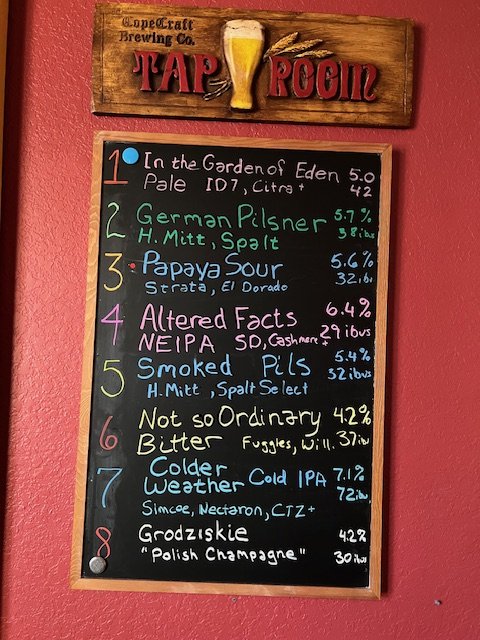 CopeCraft
Brewing Co.
TAP ROOM
1 In the Garden of Eden 5.0
Pale ID7, Citra + 42
2 German Pilsner 5.7%
H. Mitt, Spalt 38 ibu
3 Papaya Sour 5.6%
Strata, El Dorado 32 ibu
4 Altered Facts 6.4%
NEIPA SD, Cashmere + 29 ibus
5 Smoked Pils 5.4%
H. Mitt, Spalt Select 32 ibus
6 Not so Ordinary 4.2%
Bitter Fuggles, Will. 37 ibu
7 Colder
Weather Cold IPA 7.1%
72 ibu
Simcoe, Nectaron, CTZ+
8 Grodziskie 4.2%
"Polish Champagne" 30 ibus